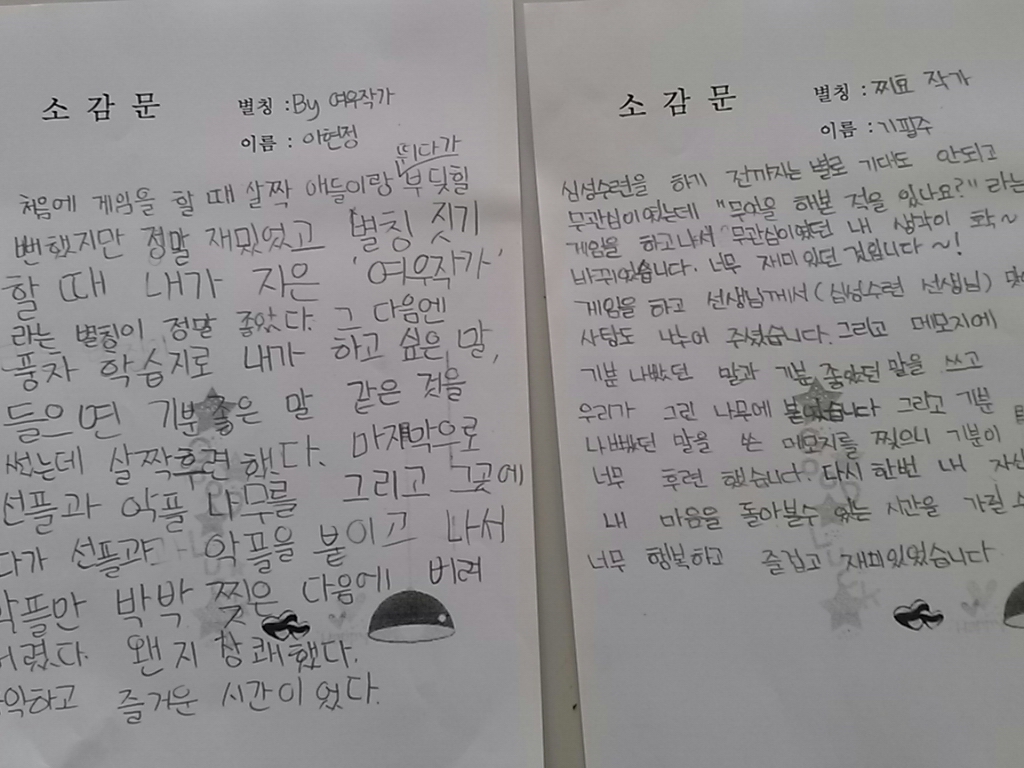 소 감 문
별칭 : By 여우작가
이름 : 이현정
뛰다가
처음에 게임을 할 때 살짝 애들이랑 부딪힐
뻔했지만 정말 재밌었고 별칭 짓기
할 때 내가 지은 '여우작가'
라는 별칭이 정말 좋았다. 그 다음엔
풍차 학습지로 내가 하고 싶은 말,
들으면 기분 좋은 말 같은 것을
썼는데 살짝 후련했다. 마지막으로
선플과 악플 나무를 그리고 그곳에
다가 선플과 악플을 붙이고 나서
악플만 박박 찢은 다음에 버려
버렸다. 왠지 상쾌했다.
하고 즐거운 시간이 었다.
소 감 문
별칭 : 찌묘 작가
이름 : 기필주
심성수련을 하기 전까지는 별로 기대도 안되고
무관심이였는데 "무아을 해본 적을 있나요?" 라는
게임을 하고나서 무관심이였던 내 생각이 확~
바뀌었습니다. 너무 재미 있던 것입니다 ~!
게임을 하고 선생님께서 (심성수련 선생님)
사탕도 나누어 주셨습니다. 그리고 메모지에
기분 나빴던 말과 기분 좋았던 말을 쓰고
우리가 그린 나무에 붙였습니다 그리고 기분
나빴던 말을 쓴 메모지를 찢으니 기분이
너무 후련 했습니다. 다시 한번 내 자신
내 마음을 돌아볼수 있는 시간을 가질
너무 행복하고 즐겁고 재미있었습니다